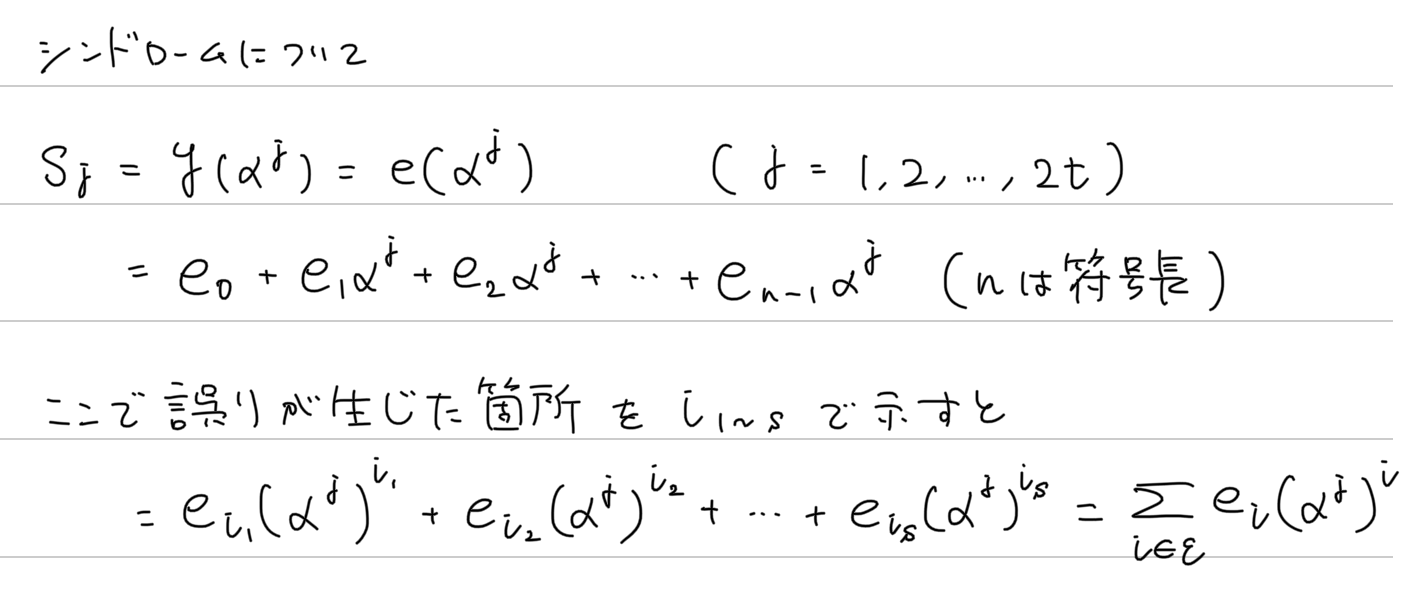 シンドロームについて
S_j = y(α^j) = e(α^j) (j = 1, 2, …, 2t)
= e_0 + e_1α^j + e_2α^j + … + e_{n-1}α^j (nは符号長)
ここで誤りが生じた箇所を i_{1~s} で示すと
= e_{i_1}(α^j)^{i_1} + e_{i_2}(α^j)^{i_2} + … + e_{i_s}(α^j)^{i_s} = Σ_{i∈ε} e_i(α^j)^i